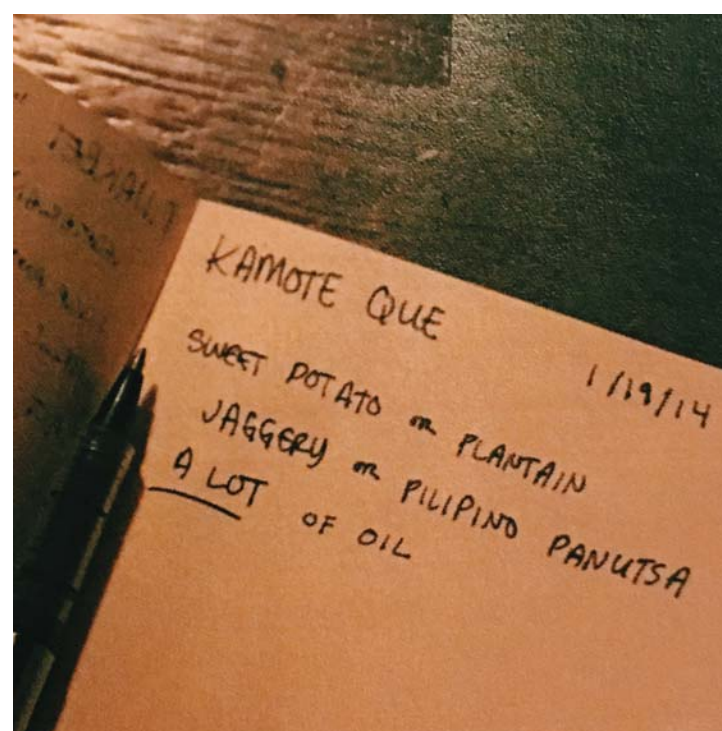 KAMOTE QUE
1/19/14
SWEET POTATO or PLANTAIN
JAGGERY or PILIPINO PANUTSA
A LOT OF OIL